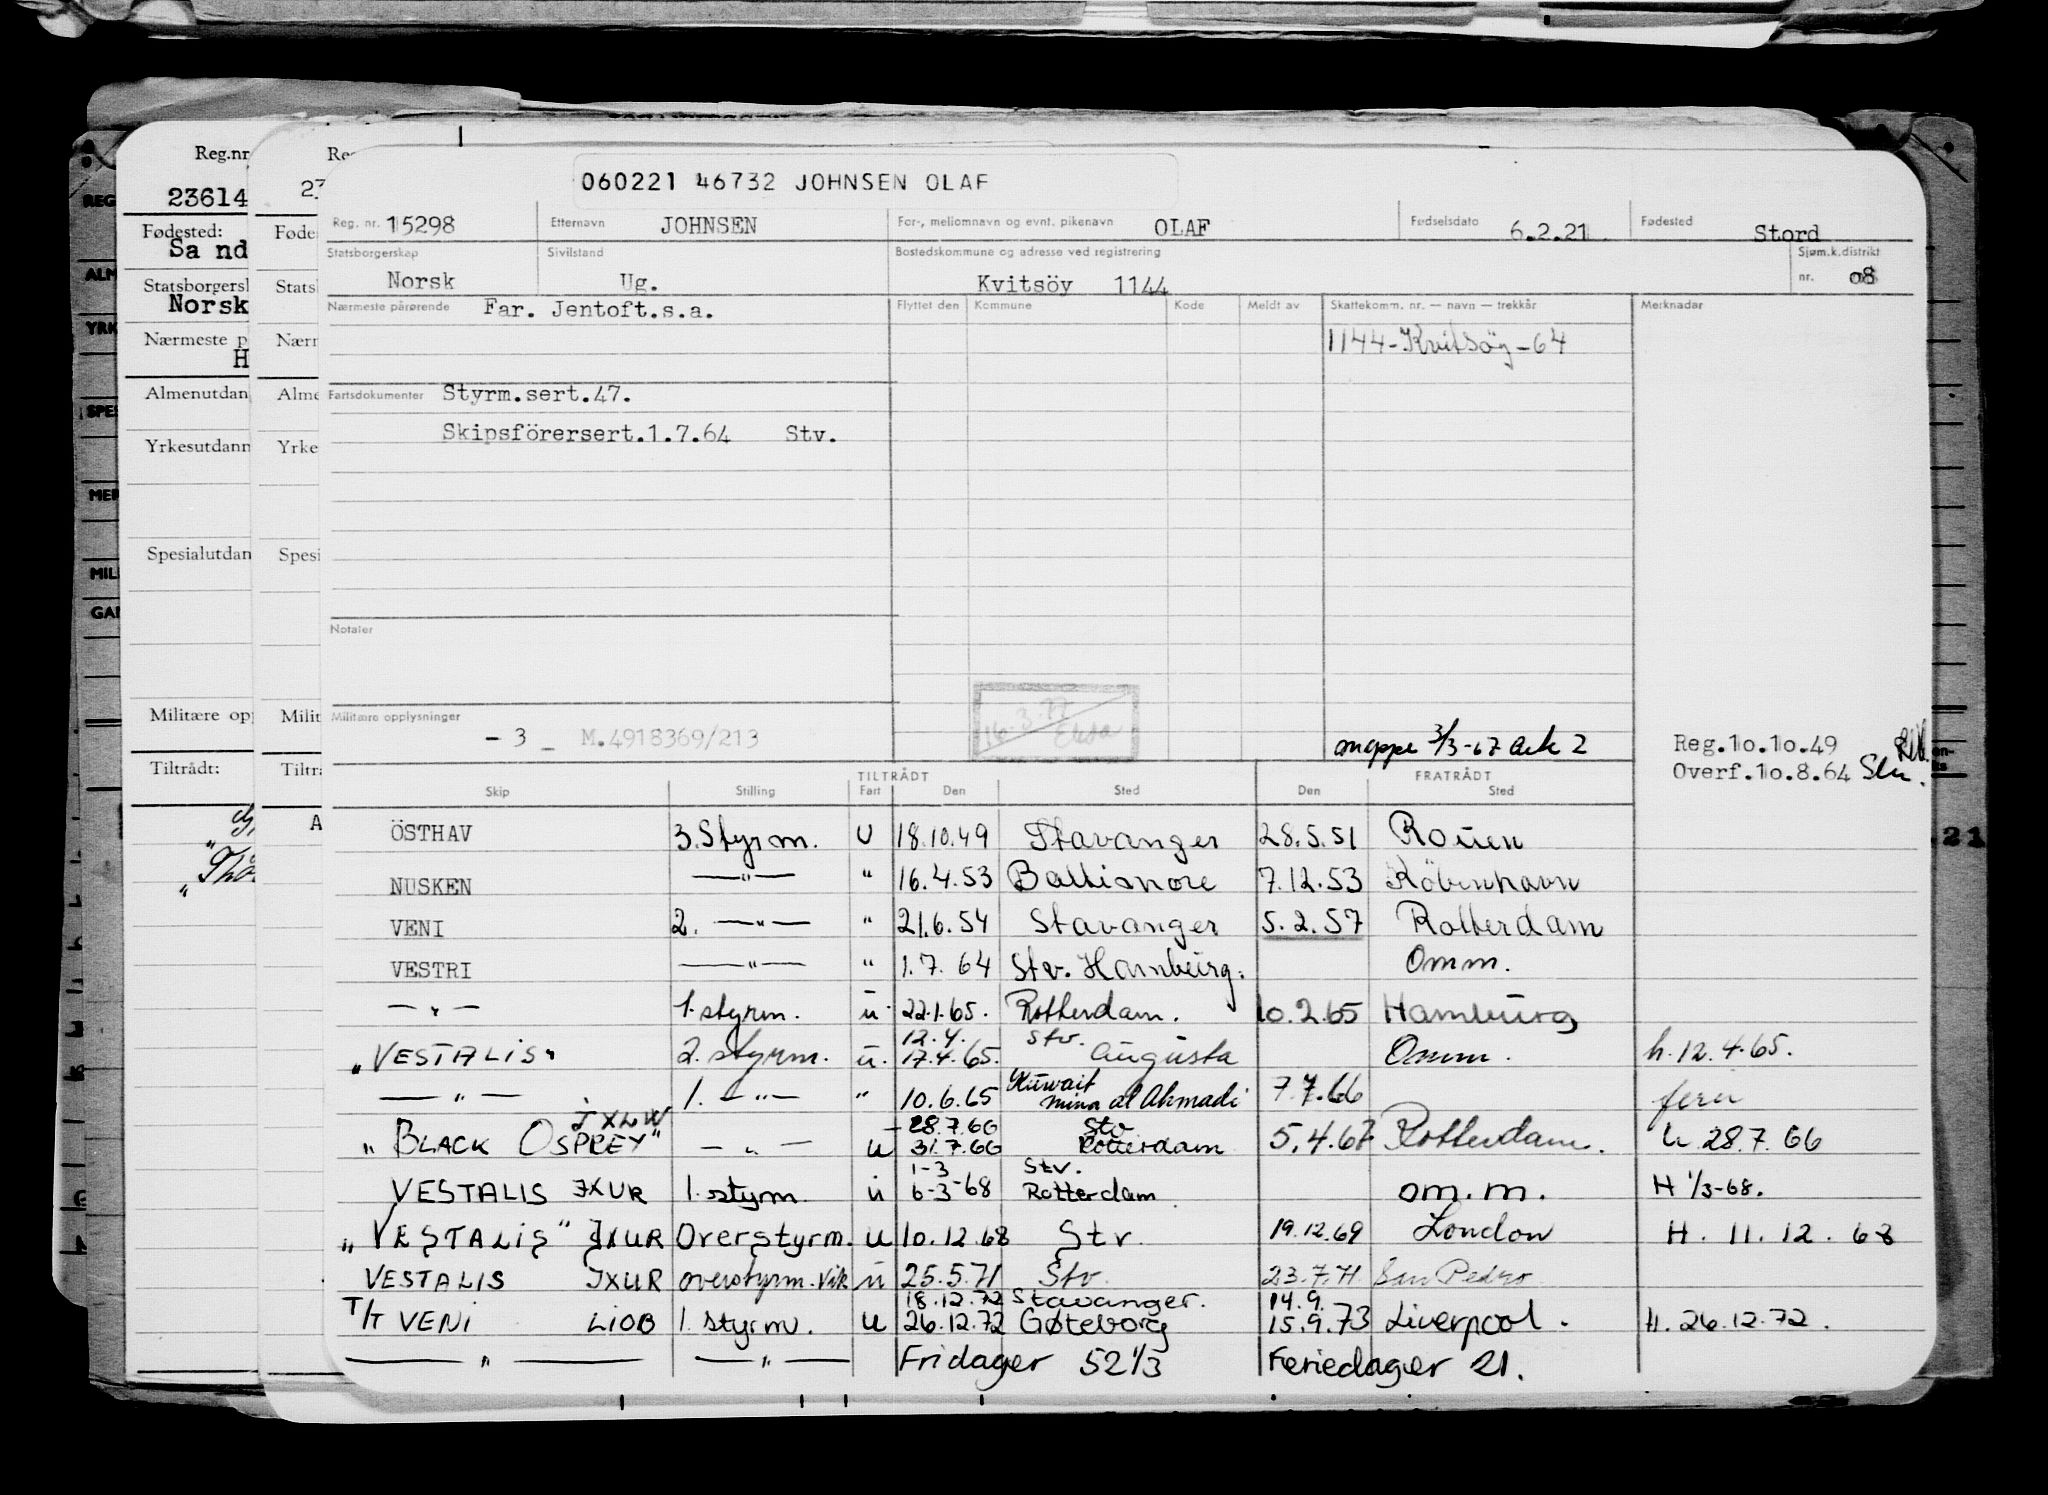 060221 46732 JOHNSEN OLAF
Reg. nr. 15298 Etternavn JOHNSEN For-, mellomnavn og evnt. pikenavn OLAF Fødselsdato 6.2.21 Fødested Stord
Statsborgerskap Norsk Sivilstand Ug. Bostedskommune og adresse ved registrering Kvitsöy 1144 Sjøm.k.distrikt nr. 08
Nærmeste pårørende Far. Jentoft.s.a. Flyttet den Kommune Kode Meldt av Skattekomm. nr. — navn — trekkår Merknader
1144-Kvitsöy-64
Fartsdokumenter Styrm.sert.47.
Skipsförersert.1.7.64 Stv.
Notater
Militære opplysninger - 3 - M.4918369/213
16.3.77
mappe 3/3-67 ark 2
Reg.10.10.49
Overf.10.8.64
TILTRÅDT FRATRÅDT
Skip Stilling Fart Den Sted Den Sted
ÖSTHAV 3. Styrm. U 18.10.49 Stavanger 28.5.51 Rouen
NUSKEN —"— " 16.4.53 Baltimore 7.12.53 Köbenhavn
VENI 2. —"— " 21.6.54 Stavanger 5.2.57 Rotterdam
VESTRI —"— " 1.7.64 Stv. Hamburg. Omm.
—"— 1. styrm. u. 22.1.65. Rotterdam. 10.2.65 Hamburg
12.4. Stv.
"VESTALIS" 2. styrm. u. 17.4.65. Augusta Omm. h. 12.4.65.
—"— 1. —"— " 10.6.65 Kuwait mina al Ahmadi 7.7.66 ferie
JXLW 28.7.66 Stv
"BLACK OSPREY" —"— u 31.7.66 Rotterdam 5.4.67 Rotterdam. h. 28.7.66
1-3 Stv.
VESTALIS JXUR 1. styrm. u 6-3-68 Rotterdam om.m. H 1/3-68.
"VESTALIS" JXUR Overstyrm. u 10.12.68 Stv. 19.12.69 London H. 11.12.68
VESTALIS JXUR overstyrm. vik u 25.5.71 Stv. 23.7.71 San Pedro
18.12.72 Stavanger. 14.9.
T/T VENI LIOB 1. styrm. u 26.12.72 Gøteborg 15.9.73 Liverpool. H. 26.12.72.
—"— —"— Fridager 52 1/3 Feriedager 21.
Reg.nr
23614
Fødested:
Sa nd
Statsborgersl
Norsk
Nærmeste p
H
Almenutdan
Yrkesutdann
Spesialutdan
Militære opp
Tiltrådt:
Re
23
Føde
Statsl
Nærr
Alme
Yrke
Spesi
Milit
Tiltrå
A
REG
ALM
YRK
SPES
MER
MIL
GAR
21